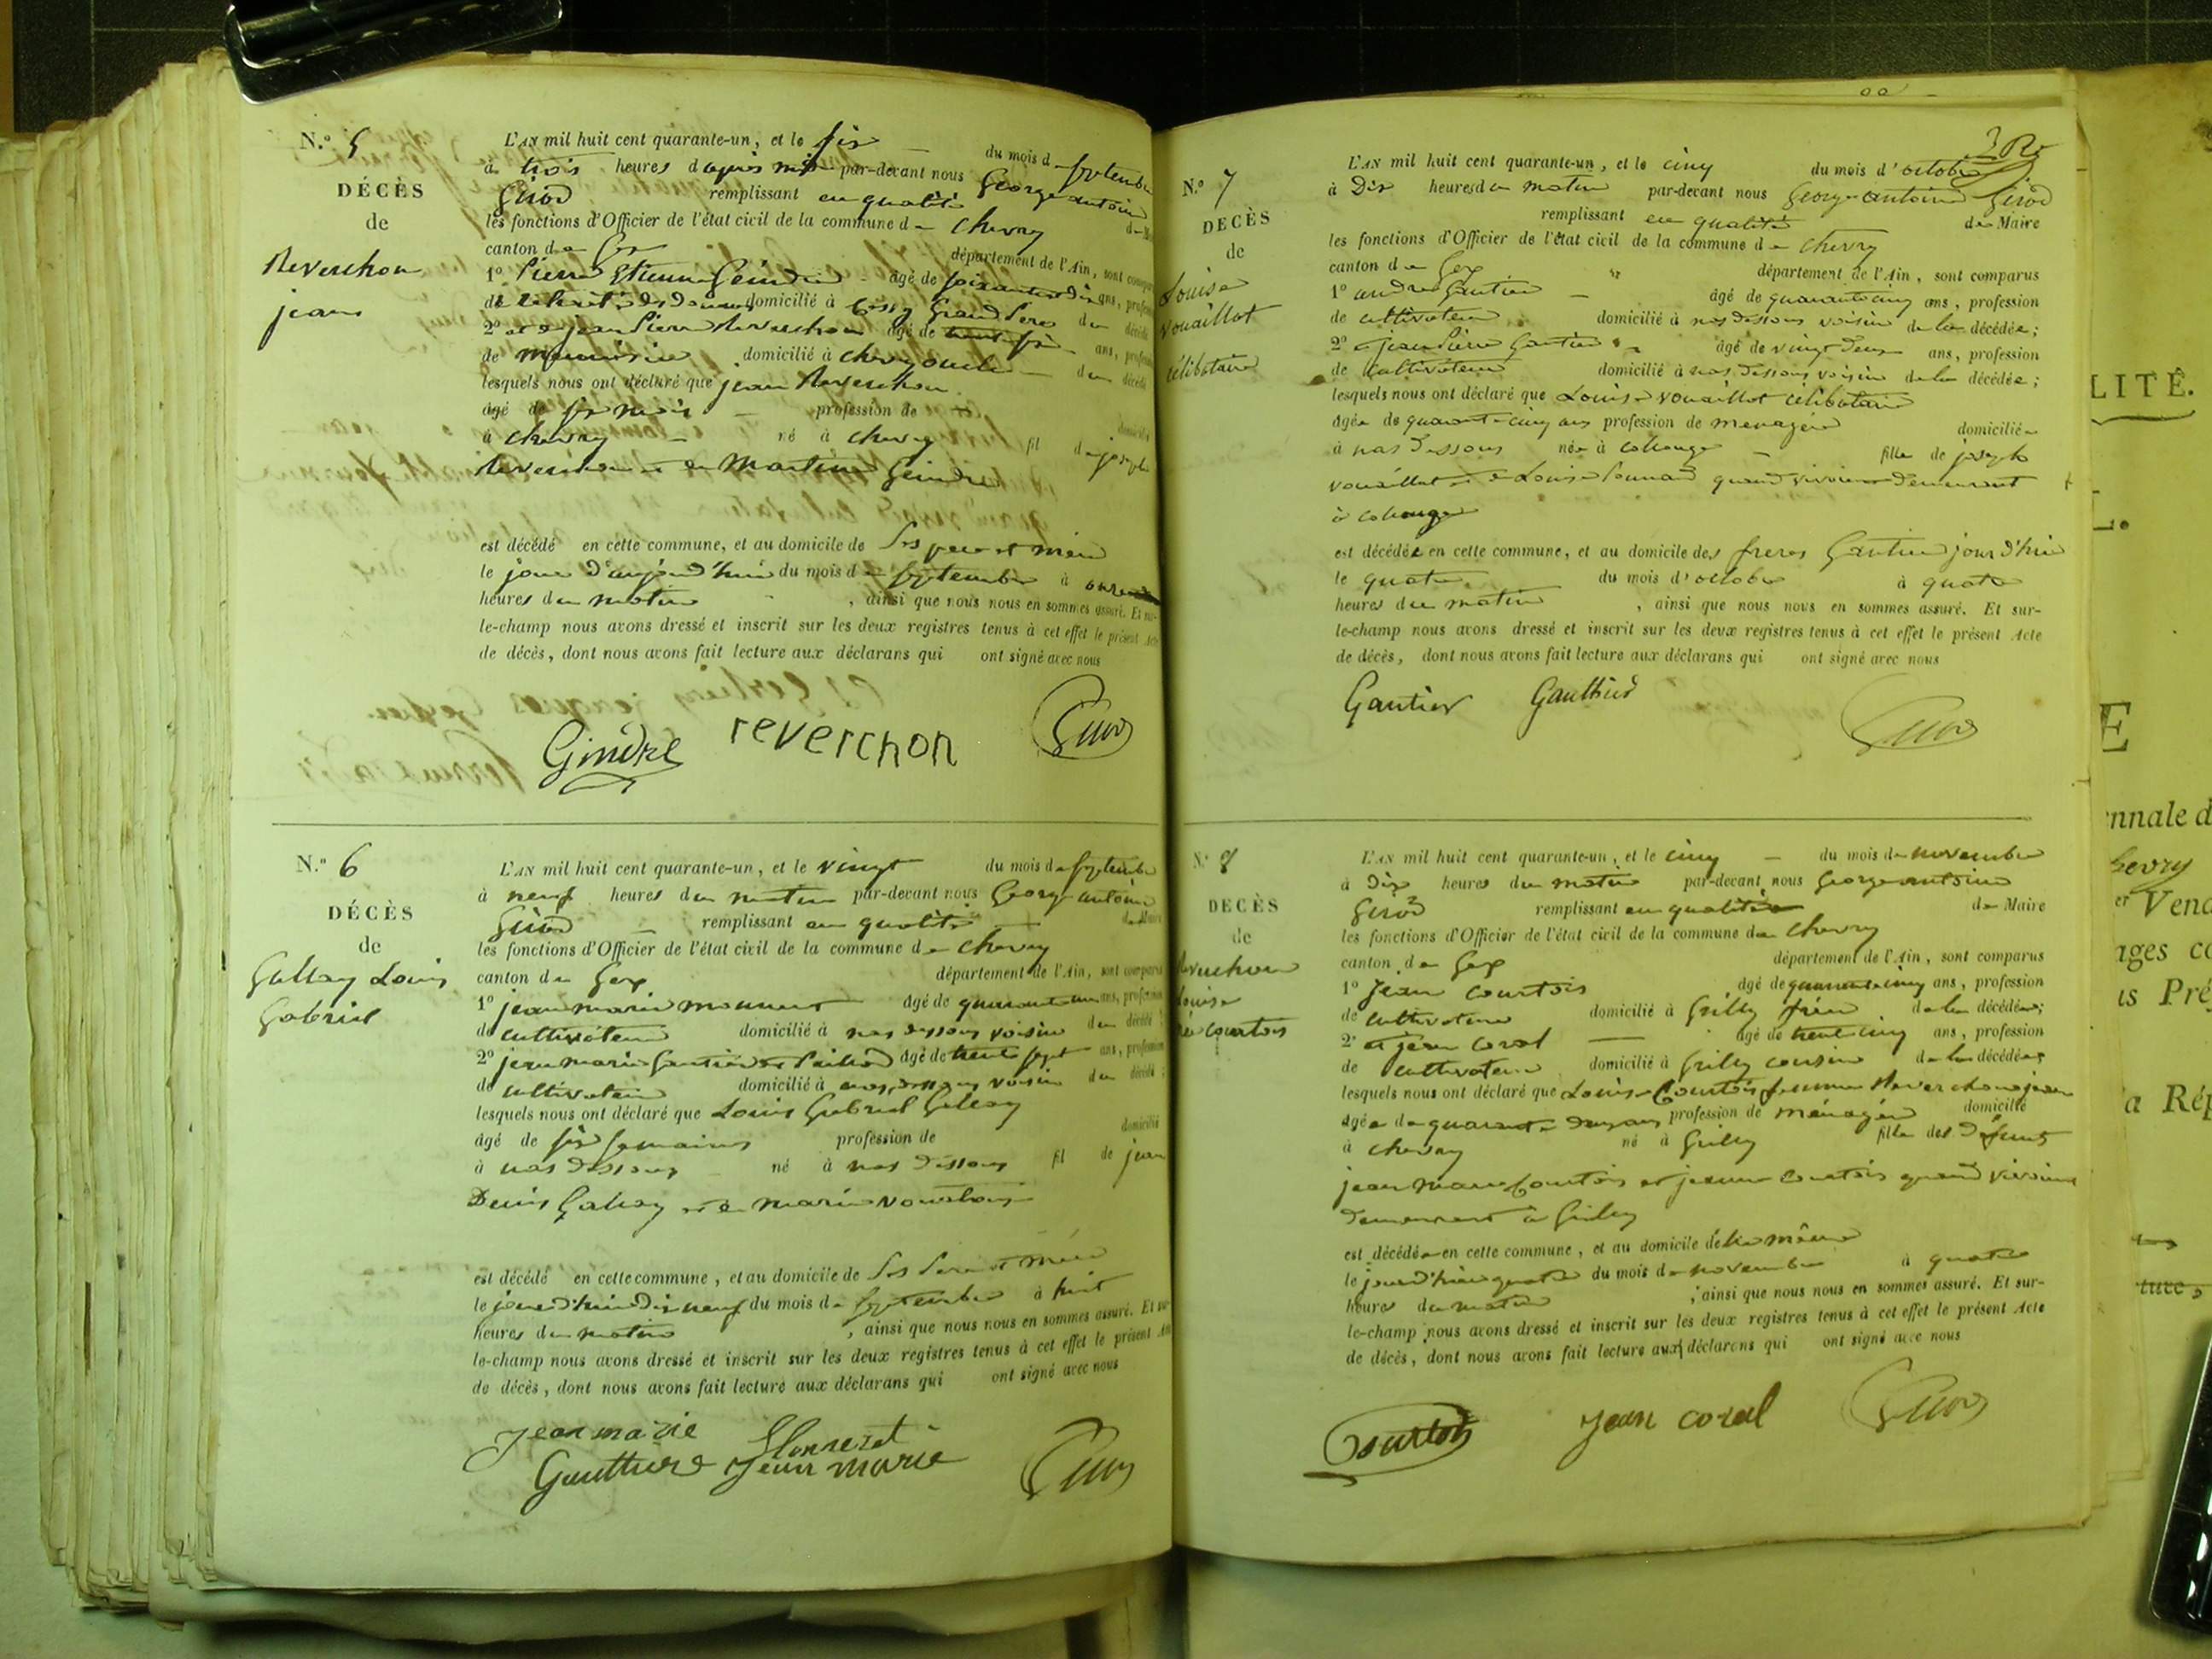 N.º 5
DÉCÈS
de
Reverchon
jean
L'AN mil huit cent quarante-un, et le six du mois d septembre
à trois heures d après midi par-devant nous George antoine
Girod remplissant en qualité de
les fonctions d'Officier de l'état civil de la commune de chevry
canton de Gex département de l'Ain, sont
1º Pierre Etienne Geindre âgé de soixante dix ans,
de domicilié à Cessy Grand Pere du décédé
2º et jean Pierre Reverchon âgé de ans,
de menuisier domicilié à chevry oncle du décédé
lesquels nous ont déclaré que jean Reverchon
âgé de six mois profession de
à chevry né à chevry fil de joseph
Reverchon et de Martine Geindre
est décédé en cette commune, et au domicile de ses pere et mère
le jour d'aujourd'hui du mois de septembre à onze
heures du matin, ainsi que nous nous en sommes assuré. Et sur-
le-champ nous avons dressé et inscrit sur les deux registres tenus à cet effet le présent Acte
de décès, dont nous avons fait lecture aux déclarans qui ont signé avec nous
Gindre reverchon Girod
N.º 6
DÉCÈS
de
Gallay Louis
Gabriel
L'AN mil huit cent quarante-un, et le vingt du mois de septembre
à neuf heures du matin par-devant nous George antoine
Girod remplissant en qualité de Maire
les fonctions d'Officier de l'état civil de la commune de chevry
canton de Gex département de l'Ain, sont comparus
1º jean marie monneret âgé de ans, profession
de cultivateur domicilié à nas dessous voisin du décédé;
2º jean marie Gautier âgé de trente sept ans, profession
de cultivateur domicilié à nas dessous voisin du décédé;
lesquels nous ont déclaré que Louis Gabriel Gallay
âgé de six semaines profession de domicilié
à nas dessous né à nas dessous fil de jean
Denis Gallay et de marie
est décédé en cette commune, et au domicile de ses pere et mère
le jour d'hier dix neuf du mois de septembre à huit
heures du matin, ainsi que nous nous en sommes assuré. Et sur-
le-champ nous avons dressé et inscrit sur les deux registres tenus à cet effet le présent Acte
de décès, dont nous avons fait lecture aux déclarans qui ont signé avec nous
Jean marie Monneret
Gauthier Jean marie Girod
N.º 7
DÉCÈS
de
Louise
vouaillat
célibataire
L'AN mil huit cent quarante-un, et le cinq du mois d'octobre
à Dix heures du matin par-devant nous George antoine Girod
remplissant en qualité de Maire
les fonctions d'Officier de l'état civil de la commune de chevry
canton de Gex département de l'Ain, sont comparus
1º andre Gautier âgé de quarante cinq ans, profession
de cultivateur domicilié à nas dessous voisin de la décédée;
2º et jean Pierre Gautier âgé de vingt deux ans, profession
de cultivateur domicilié à nas dessous voisin de la décédée;
lesquels nous ont déclaré que Louise vouaillat célibataire
âgée de quarante cinq ans profession de menagère domiciliée
à nas dessous née à collonge fille de joseph
vouaillat et de Louise quand vivoient demeurant
à collonge
est décédée en cette commune, et au domicile des freres Gautier jour d'hier
le quatre du mois d'octobre à quatre
heures du matin, ainsi que nous nous en sommes assuré. Et sur-
le-champ nous avons dressé et inscrit sur les deux registres tenus à cet effet le présent Acte
de décès, dont nous avons fait lecture aux déclarans qui ont signé avec nous
Gautier Gauthier Girod
N.º 8
DÉCÈS
de
Reverchon
Louise
née courtois
L'AN mil huit cent quarante-un, et le cinq du mois de novembre
à dix heures du matin par-devant nous George antoine
Girod remplissant en qualité de Maire
les fonctions d'Officier de l'état civil de la commune de chevry
canton de Gex département de l'Ain, sont comparus
1º Jean courtois âgé de quarante cinq ans, profession
de cultivateur domicilié à Grilly frère de la décédée;
2º et jean coral âgé de trente cinq ans, profession
de cultivateur domicilié à Grilly cousin de la décédée;
lesquels nous ont déclaré que Louise Courtois femme Reverchon jean
âgée de quarante deux ans profession de ménagère domicilié
à chevry né à Grilly fille des défunts
jean marie Courtois et jeanne Courtois quand vivoient
demeurant à Grilly
est décédée en cette commune, et au domicile de lui même
le jour d'hier quatre du mois de novembre à quatre
heures du matin, ainsi que nous nous en sommes assuré. Et sur-
le-champ nous avons dressé et inscrit sur les deux registres tenus à cet effet le présent Acte
de décès, dont nous avons fait lecture aux déclarans qui ont signé avec nous
Courtois jean coral Girod
LITÉ.
E
nnale d
hevry
er Vend
ages co
is Pré
a Rép